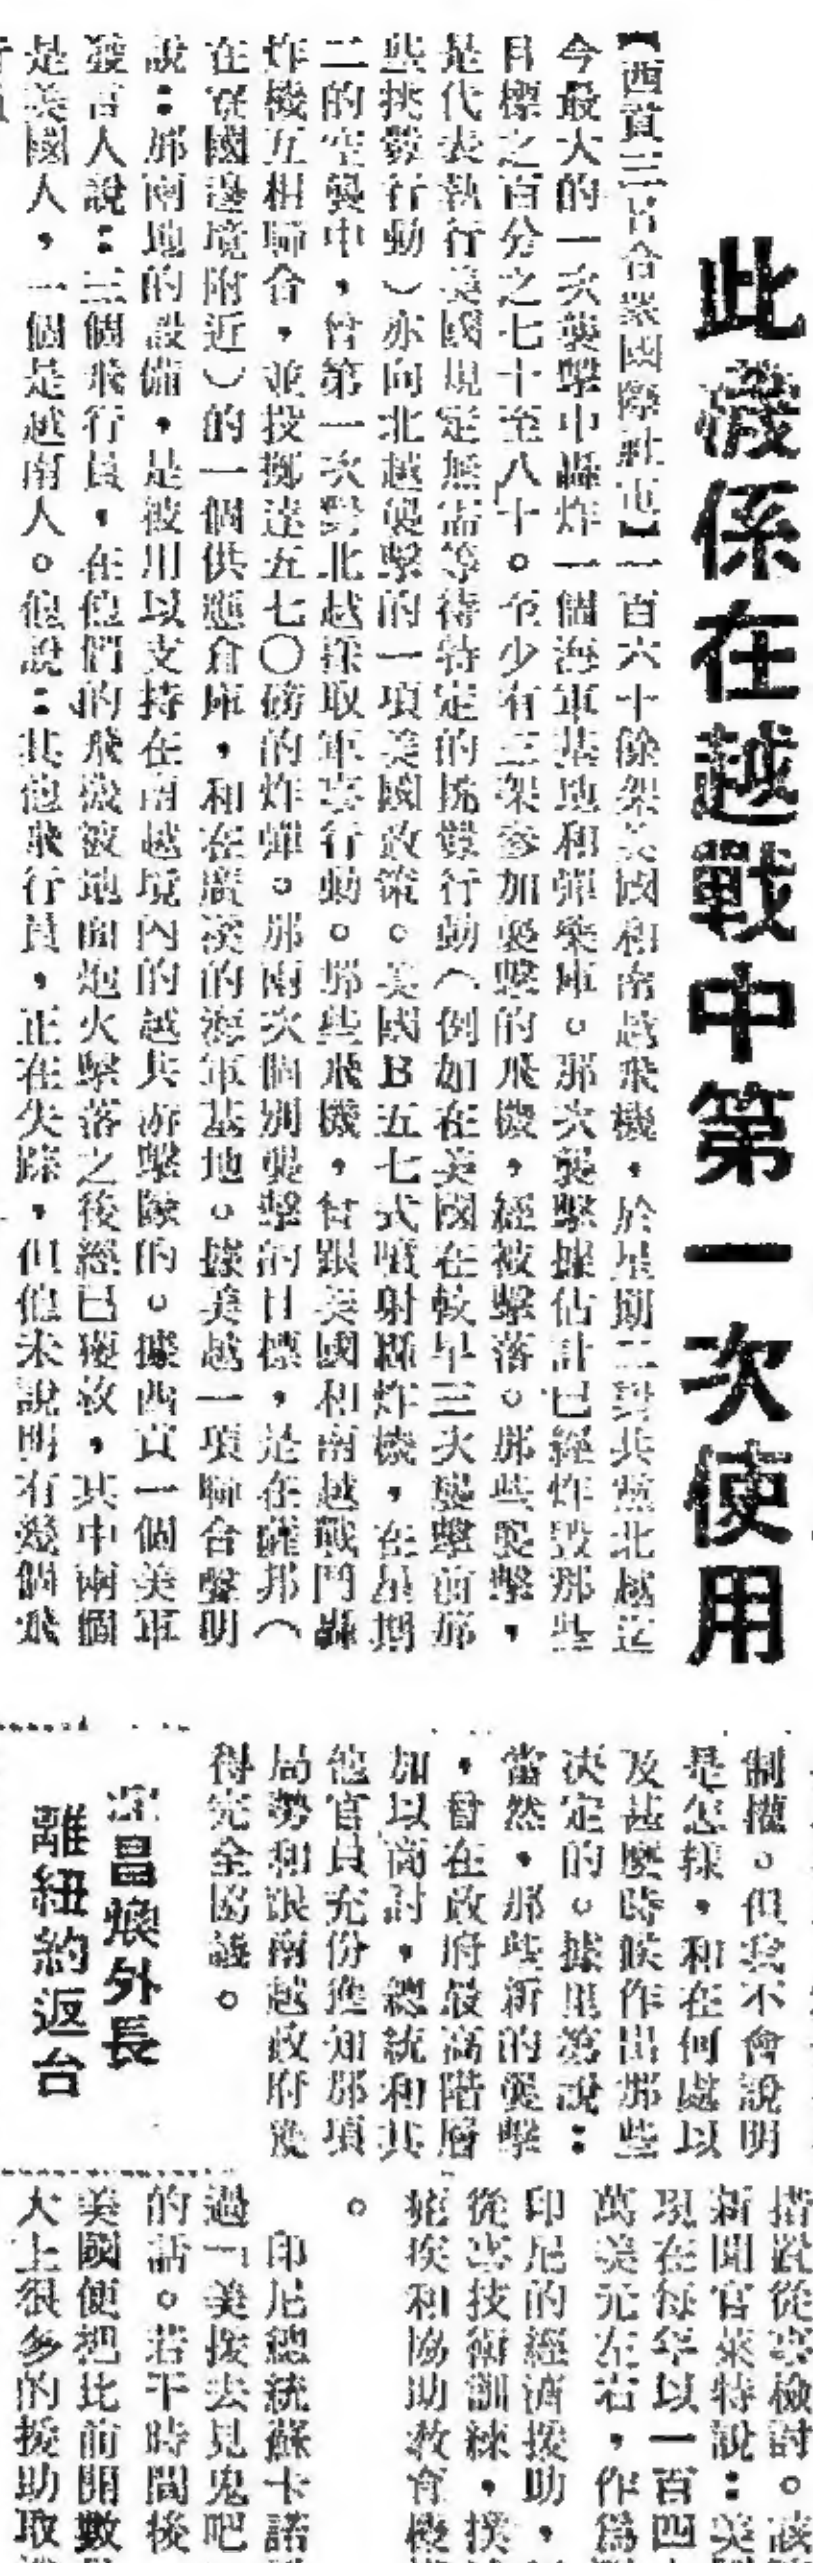 此機係在越戰中第一次使用
【西貢三日合眾國際社電】一百六十餘架美國和南越飛機，於星期二對共黨北越迄
今最大的一次襲擊中轟炸一個海軍基地和彈藥庫。那次襲擊據估計已經炸毀那些
目標之百分之七十至八十。至少有三架參加襲擊的飛機，經被擊落。那些襲擊，
是代表執行美國規定無需等待特定的挑釁行動（例如在美國在較早三次襲擊前那
些挑釁行動）亦向北越襲擊的一項美國政策。美國B五七式噴射轟炸機，在星期
二的空襲中，曾第一次對北越採取軍事行動。那些飛機，曾跟美國和南越戰鬥轟
炸機互相聯合，並投擲達五七〇磅的炸彈。那兩次個別襲擊的目標，是在薩邦（
在寮國邊境附近）的一個供應倉庫，和在廣溪的海軍基地。據美越一項聯合聲明
說：那兩地的設備，是被用以支持在南越境內的越共游擊隊的。據西貢一個美軍
發言人說：三個飛行員，在他們的飛機被地面炮火擊落之後經已獲救，其中兩個
是美國人，一個是越南人。他說：其他飛行員，正在失蹤，但他未說明有幾個飛
行員
制權。但我不會說明
是怎樣，和在何處以
及甚麼時候作出那些
決定的。據里第說：
當然，那些新的襲擊
，曾在政府最高階層
加以商討，總統和其
他官員充份進知那項
局勢和跟南越政府獲
得完全協議。
沈昌煥外長
離紐約返台
措置從事檢討。該
新聞官萊特說：美
現在每年以一百四
萬美元左右，作爲
印尼的經濟援助，
從事技術訓練，撲
瘧疾和協助教育機
。
印尼總統蘇卡諾
過「美援去見鬼吧
的話。若干時間後
美國便把比前開數
大上很多的援助取